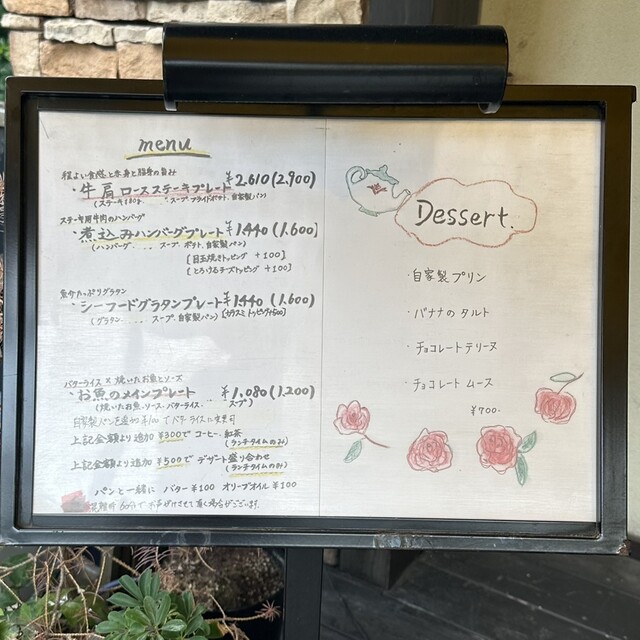 menu
程よい食感と赤身と脂身の旨み
・牛肩ロースステーキプレート ¥2,610(2,900)
(ステーキ180g. スープ フライドポテト. 自家製パン)
ステーキ用牛肉のハンバーグ
・煮込みハンバーグプレート ¥1,440(1,600)
(ハンバーグ.... スープ. ポテト. 自家製パン)
[目玉焼きトッピング +100]
[とろけるチーズトッピング +100]
魚介たっぷりグラタン
・シーフードグラタンプレート ¥1,440(1,600)
(グラタン.... スープ. 自家製パン)
バターライス × 焼いたお魚とソース
・お魚のメインプレート ¥1,080(1,200)
(焼いたお魚. ソース. バターライス.... スープ)
上記金額より追加 ¥300で コーヒー. 紅茶
(ランチタイムのみ)
上記金額より追加 ¥500で デザート盛り合わせ
(ランチタイムのみ)
パンと一緒に バター ¥100 オリーブオイル ¥100
Dessert.
・自家製プリン
・バナナのタルト
・チョコレートテリーヌ
・チョコレートムース
¥700.